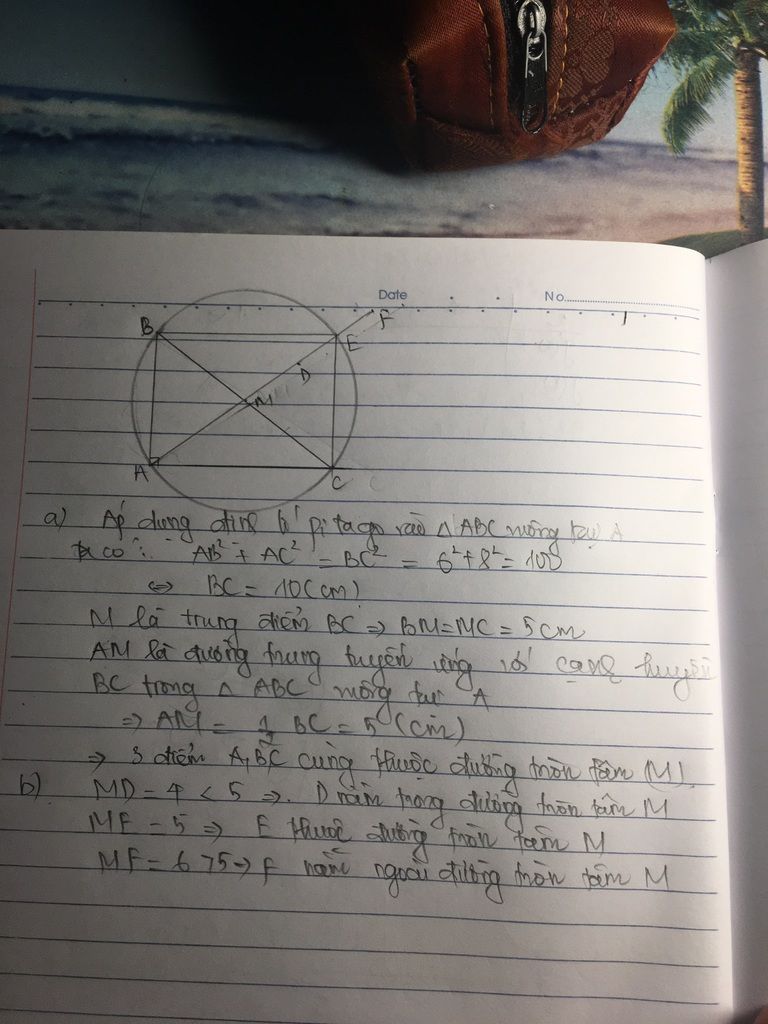 Date
No
B
E
F
D
M
A
C
a) Áp dụng định lí pitago vào △ABC vuông tại A
ta có : AB² + AC² = BC² = 6²+8² = 100
⇔ BC = 10(cm)
M là trung điểm BC ⇒ BM=MC = 5cm
AM là đường trung tuyến ứng với cạnh huyền
BC trong △ ABC vuông tại A
⇒ AM = 1/2 BC = 5 (cm)
⇒ 3 điểm A,B,C cùng thuộc đường tròn tâm (M)
b) MD = 4 < 5 ⇒. D nằm trong đường tròn tâm M
ME = 5 ⇒ E thuộc đường tròn tâm M
MF = 6 > 5 ⇒ F nằm ngoài đường tròn tâm M